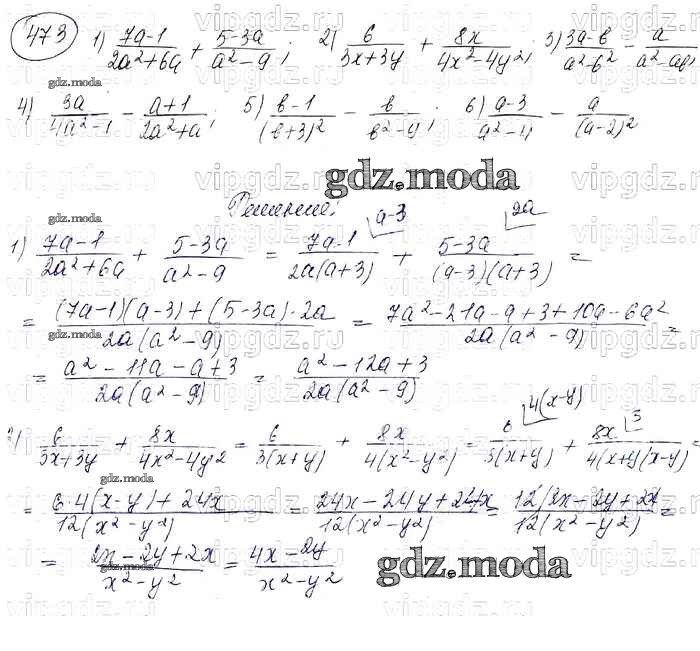 473 1) (7a-1)/(2a²+6a) + (5-3a)/(a²-9); 2) 6/(3x+3y) + 8x/(4x²-4y²); 3) (3a-в)/(a²-в²) - a/(a²-aв);
gdz.moda
4) 3a/(4a²-1) - (a+1)/(2a²+a); 5) (в-1)/(в+3)² - в/(в²-9); 6) (a-3)/(a²-4) - a/(a-2)²
gdz.moda
Решение:
gdz.moda
1) (7a-1)/(2a²+6a) + (5-3a)/(a²-9) = (7a-1)/(2a(a+3)) ⌊a-3 + (5-3a)/((a-3)(a+3)) ⌊2a =
= ((7a-1)(a-3)+(5-3a)·2a)/(2a(a²-9)) = (7a²-21a-a+3+10a-6a²)/(2a(a²-9)) =
= (a²-11a-a+3)/(2a(a²-9)) = (a²-12a+3)/(2a(a²-9))
gdz.moda
2) 6/(3x+3y) + 8x/(4x²-4y²) = 6/(3(x+y)) + 8x/(4(x²-y²)) = 6/(3(x+y)) ⌊4(x-y) + 8x/(4(x+y)(x-y)) ⌊3 =
gdz.moda
= (6·4(x-y)+24x)/(12(x²-y²)) = (24x-24y+24x)/(12(x²-y²)) = 12(2x-2y+2x)/(12(x²-y²)) =
= (2x-2y+2x)/(x²-y²) = (4x-2y)/(x²-y²)
gdz.moda
vipgdz.ru